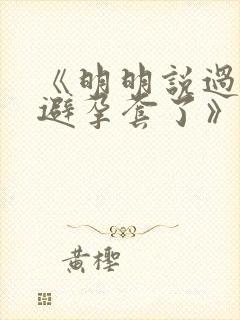 《明明說過
避孕套了》
黃櫻